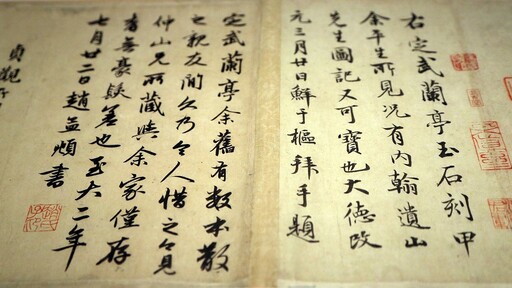 右定武蘭亭玉石刻甲
余平生所見況有内翰遺山
先生圖記又可寶也大德改
元三月廿日鮮于樞拜手題
定武蘭亭余舊有數本散
之親友間久乃令人惜之今見
仲山兄所藏與余家僅存
者無豪髮差也至大二年
七月廿二日趙孟頫書
貞觀